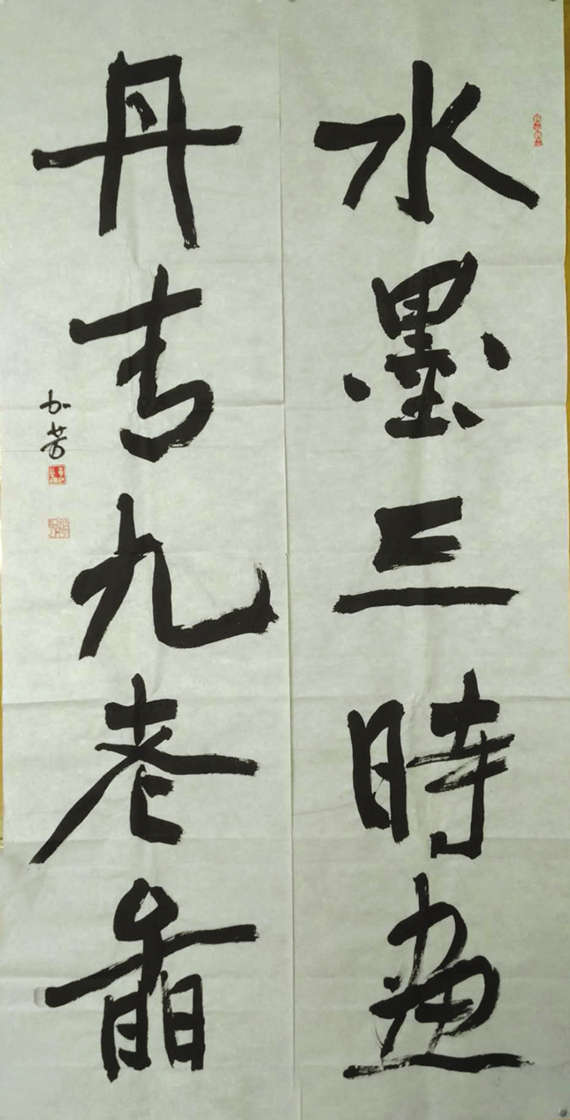 水墨三時畫
丹青九老
芳